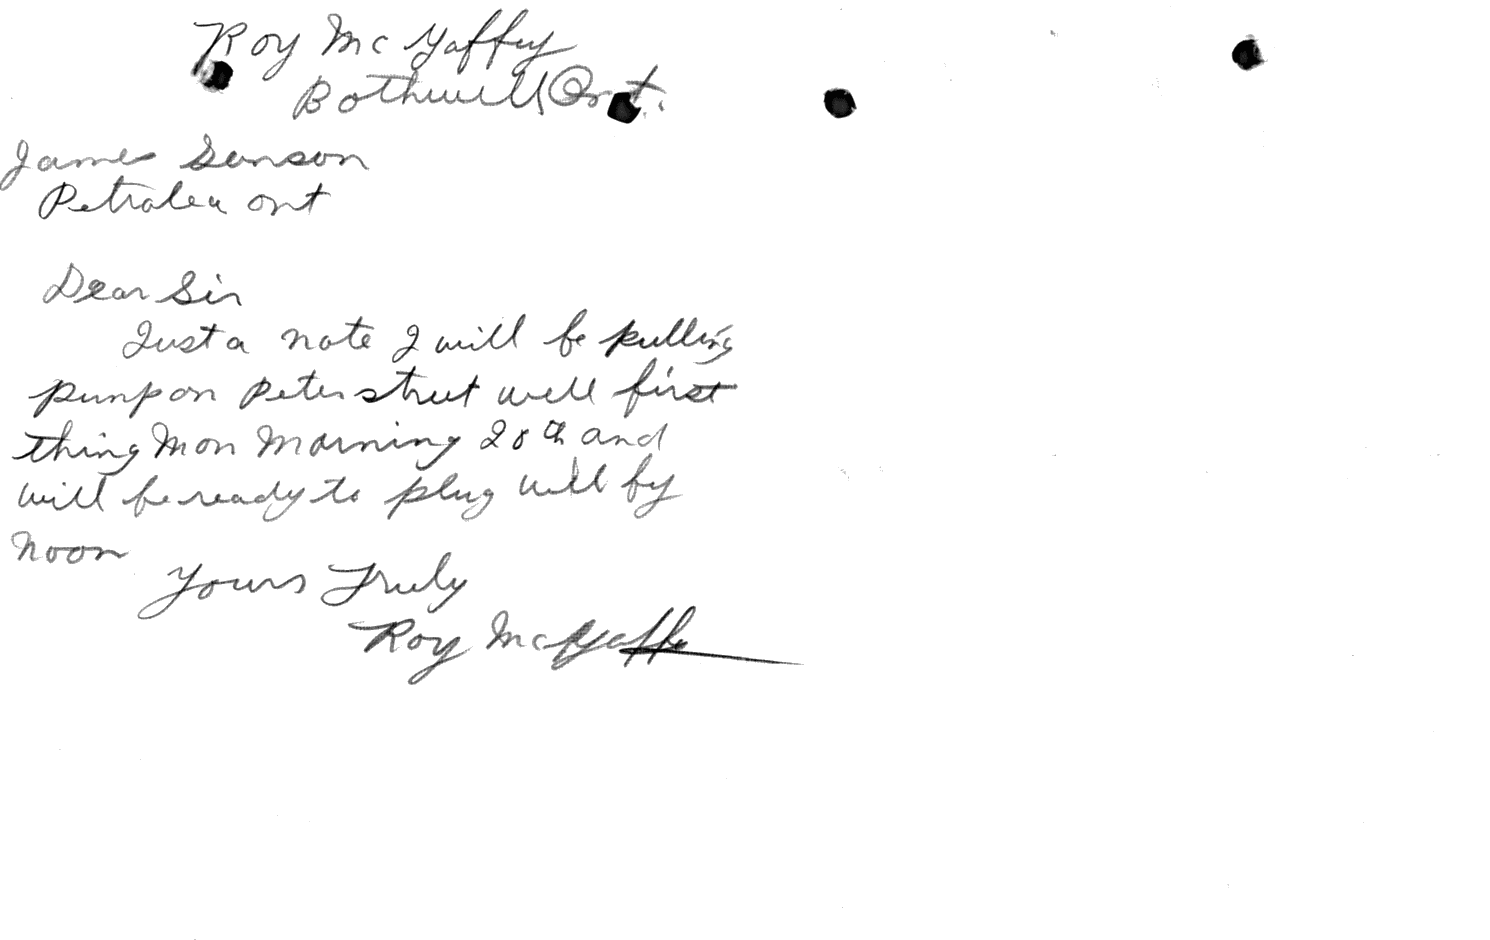 Roy Mc Gaffey
Bothwell Ont.
James Sanson
Petrolea ont
Dear Sir
Just a note I will be pulling
pump on Peter street well first
thing Mon Morning 28th and
will be ready to plug well by
noon
Yours Truly
Roy McGaffe